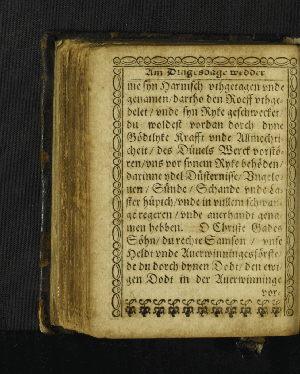 Am Dingesdage wedder
me syn Harnisch vthgetagen vnde
genamen / dartho den Roeff vthge-
delet / vnde syn Ryke geschwecket
du woldest vordan dorch dyne
Gödtlyke Krafft vnde Allmechti-
cheit / des Düuels Werck vorstö-
ren / vns vor synem Ryke behöden /
darinne ydel Düsternisse / Vngelo-
uen / Sünde / Schande vnde La-
ster hüpich / vnde in vullem schwan-
ge regeren / vnde auerhandt gena-
men hebben. O Christe Gades
Söhn / du rechte Samson / vnse
Heldt vnde Auerwinninges förste /
de du dorch dynen Dodt / den ewi-
gen Dodt in der Auerwinninge
vor-